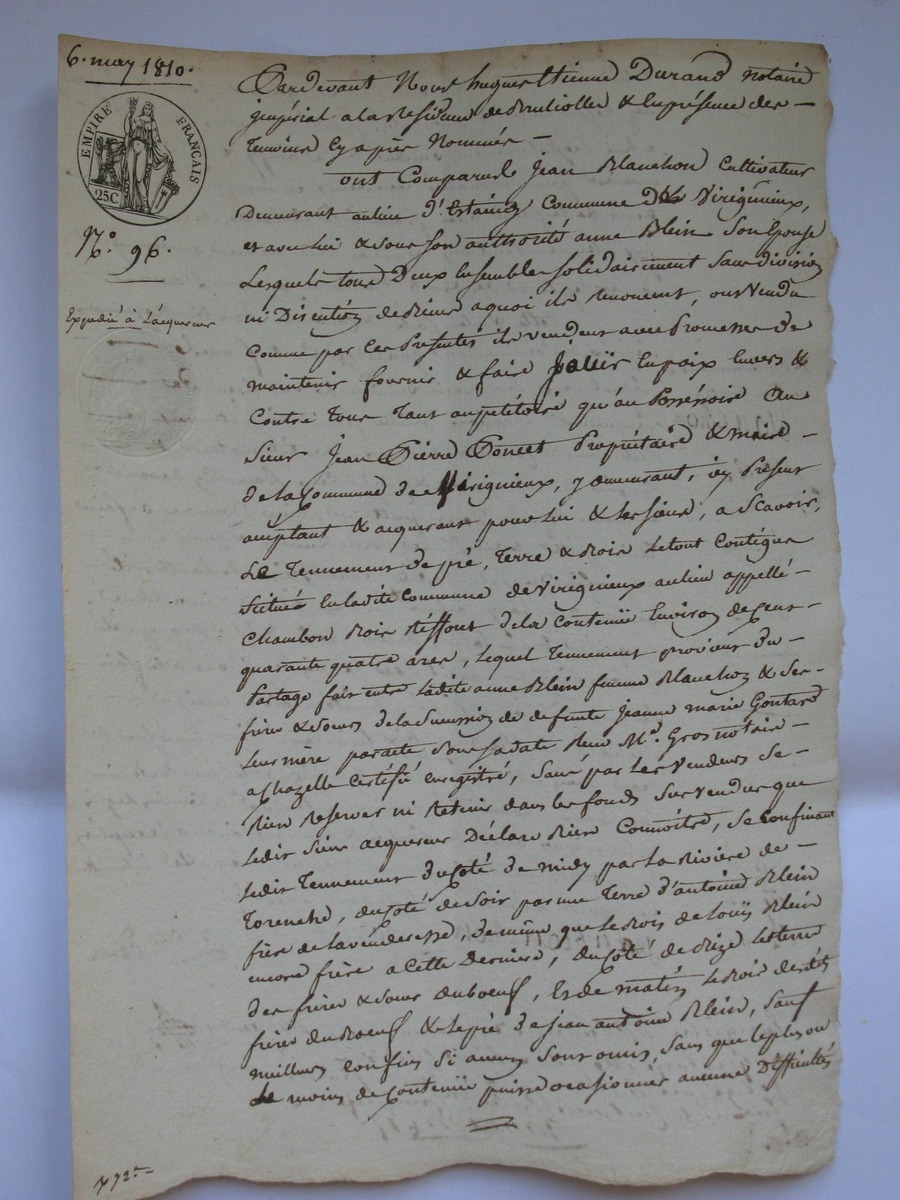 6. may 1810.
EMPIRE FRANCAIS
25C
N.º 96.
Expedié à l'acquereur
Pardevant Nous hugues Etienne Durand notaire
jmpérial a la residence de Brullolles & en présence des —
temoins cy après Nommés —
ont Comparus Jean Blanchon Cultivateur
Demeurant au lieu d'Estaing Commune De Virigneux,
et avec lui & sous son authorité anne Blein Son Epouse
Lesquels tous Deux Ensemble solidairement Sans division
ni Discution de Biens a quoi ils renoncent, ont Vendu
Comme par Ces Presentes ils vendent avec Promesse De
maintenir fournir & faire Joüir En paix Envers &
Contre tous tant au petitoire qu'au Possessoire Au
Sieur Jean Pierre Poncet Propriétaire & maire —
de la Commune de Virigneux, y demeurant, icy Present
acceptant & acquerant pour Lui & les siens, a Scavoir,
Le Tennement De pré, Terre & Bois Le tout Contigue
Situé En ladite Commune de Virigneux au lieu appellé —
Chambon Bois de la Contenüe Environ de Cent —
quarante quatre ares, Lequel Tennement provient Du —
Partage fait entre Ladite anne Blein femme Blanchon & Ses —
frères & Soeurs de la Succession de defunte Jeanne marie Gontard
Leur mère par acte Sous Sa date Reçu M.e Gros notaire —
a Chazelle Certifié enregistré, Sans par Les Vendeurs Se —
Rien reserver ni Retenir dans les fonds Sus vendus que
Ledit Sieur acquereur Déclare Bien Connoître, Se Confinant
Ledit Tennement du Coté de midy par La Rivière de —
Torenche, du Coté de Soir par une Terre d'antoine Blein
frère de la venderesse, de même que le Bois de Loüis Blein
encore frère a Cette Derniere, du Coté de Bize les terres
des frères & Soeurs duboeuf, Et de matin le Bois desdits
frères du Boeuf & le pré de Jean antoine Blein, Sauf
meilleurs confins Si aucuns Sont omis, Sans que le plus ou
Le moins de Contenüe puisse ocasionner aucune Difficultés